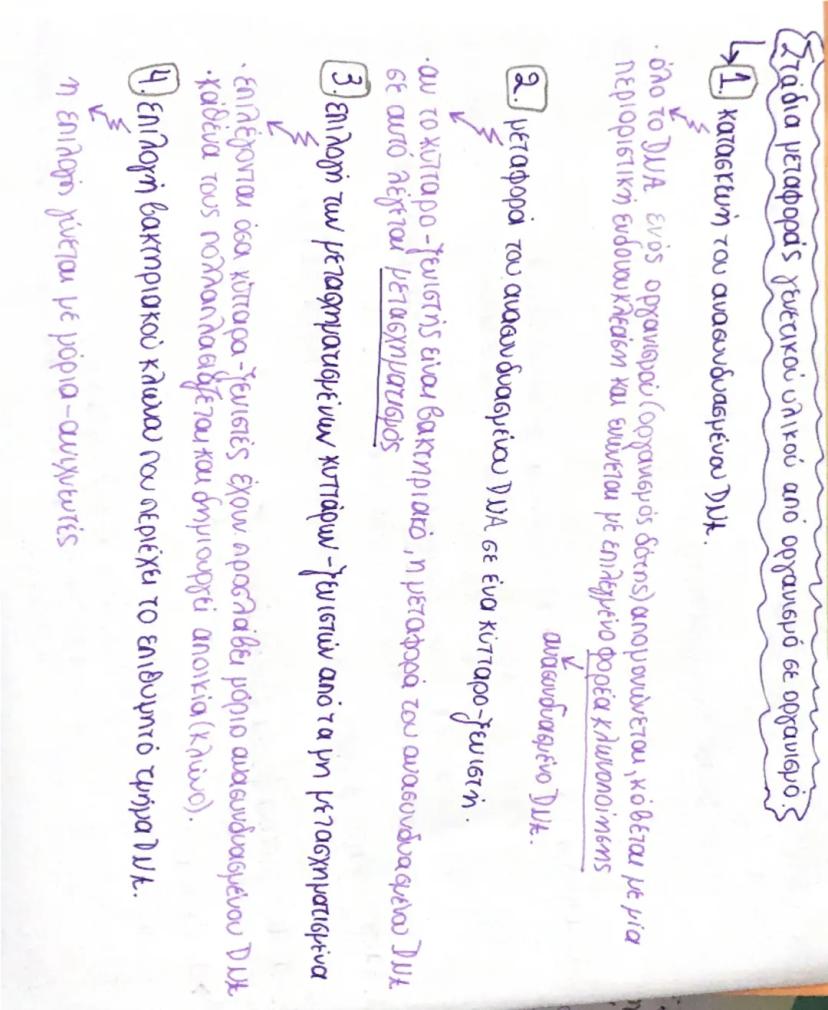 Στάδια μεταφοράς γενετικού υλικού από οργανισμό σε οργανισμό.
1. κατασκευή του ανασυνδυασμένου DNA.
· όλο το DNA ενός οργανισμού (οργανισμός δότης) απομονώνεται, κόβεται με μία
περιοριστική ενδονουκλεάση και ενώνεται με επιλεγμένο φορέα κλωνοποίησης
ανασυνδυασμένο DNA.
2. μεταφορά του ανασυνδυασμένου DNA σε ένα κύτταρο-ξενιστή.
· αν το κύτταρο-ξενιστής είναι βακτηριακό, η μεταφορά του ανασυνδυασμένου DNA
σε αυτό λέγεται μετασχηματισμός
3. επιλογή των μετασχηματισμένων κυττάρων-ξενιστών από τα μη μετασχηματισμένα
· επιλέγονται όσα κύτταρα-ξενιστές έχουν προσλάβει μόριο ανασυνδυασμένου DNA
· καθένα τους πολλαπλασιάζεται και δημιουργεί αποικία (κλώνο).
4. επιλογή βακτηριακού κλώνου που περιέχει το επιθυμητό τμήμα DNA.
η επιλογή γίνεται με μόρια-ανιχνευτές